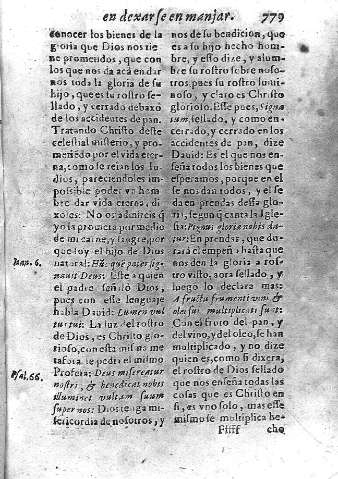 en dexarse en manjar. 779
conocer los bienes de la
gloria que Dios nos tie
ne promeridos, que con
los que nos da acà en dar
nos toda la gloria de su
hijo, que es tu rostro se-
llado, y cerrado debaxo
de los accidentes de pan.
Tratando Christo deste
celestial misterio, y pro-
metiēdo por el vida eter
na, como se reian los Iu-
dios, pareciendoles im-
possible poder vn hom-
bre dar vida eterna, di-
xoles: No os admireis q̃
yo la prometa por medio
de mi carne, y sangre, por
que soy el hijo de Dios
Ioan. 6. natural: Hũc pater sig-
nauit Deus: Este a quien
el padre señalò Dios,
pues con este lenguaje
habla Dauid: Lumen vul
tus tui: La luz del rostro
de Dios, es Christo glo-
rioso, con esta misma me
tafora le pedia el mismo
Psal. 66. Profeta: Deus misereatur
nostri, & benedicat nobis
illuminet vultum suum
super nos: Dios tenga mi-
sericordia de nosotros, y
nos de su bendicion, que
es a su hijo hecho hom-
bre, y esso dize, y alum-
bre su rostro sobre noso-
tros, pues su rostro lo ni-
noso, y claro es Christo
glorioso. Esse pues, Signa
tum, sellado, y como en-
cerrado, y cerrado en los
accidentes de pan, dize
Dauid: Es el que nos en-
seña todos los bienes que
esperamos, porque en el
se nos dan todos, y el se
da en prendas dessa glo-
ria, segun q̃ canta la Igle-
sia: Pignus gloria nobis da-
tur: En prendas, que du-
rarà el empeño hasta que
nos den la gloria a ros-
tro visto, aora sellado, y
luego lo declara mas:
A fructu frumenti vini &
olei sui multiplicati sunt:
Con el fruto del pan, y
del vino, y del oleo, se han
multiplicado, y no dize
quien es, como si dixera,
el rostro de Dios sellado
que nos enseña todas las
cosas que es Christo en
si, es vno solo, mas esse
mismo se multiplica he-
Ffff cho